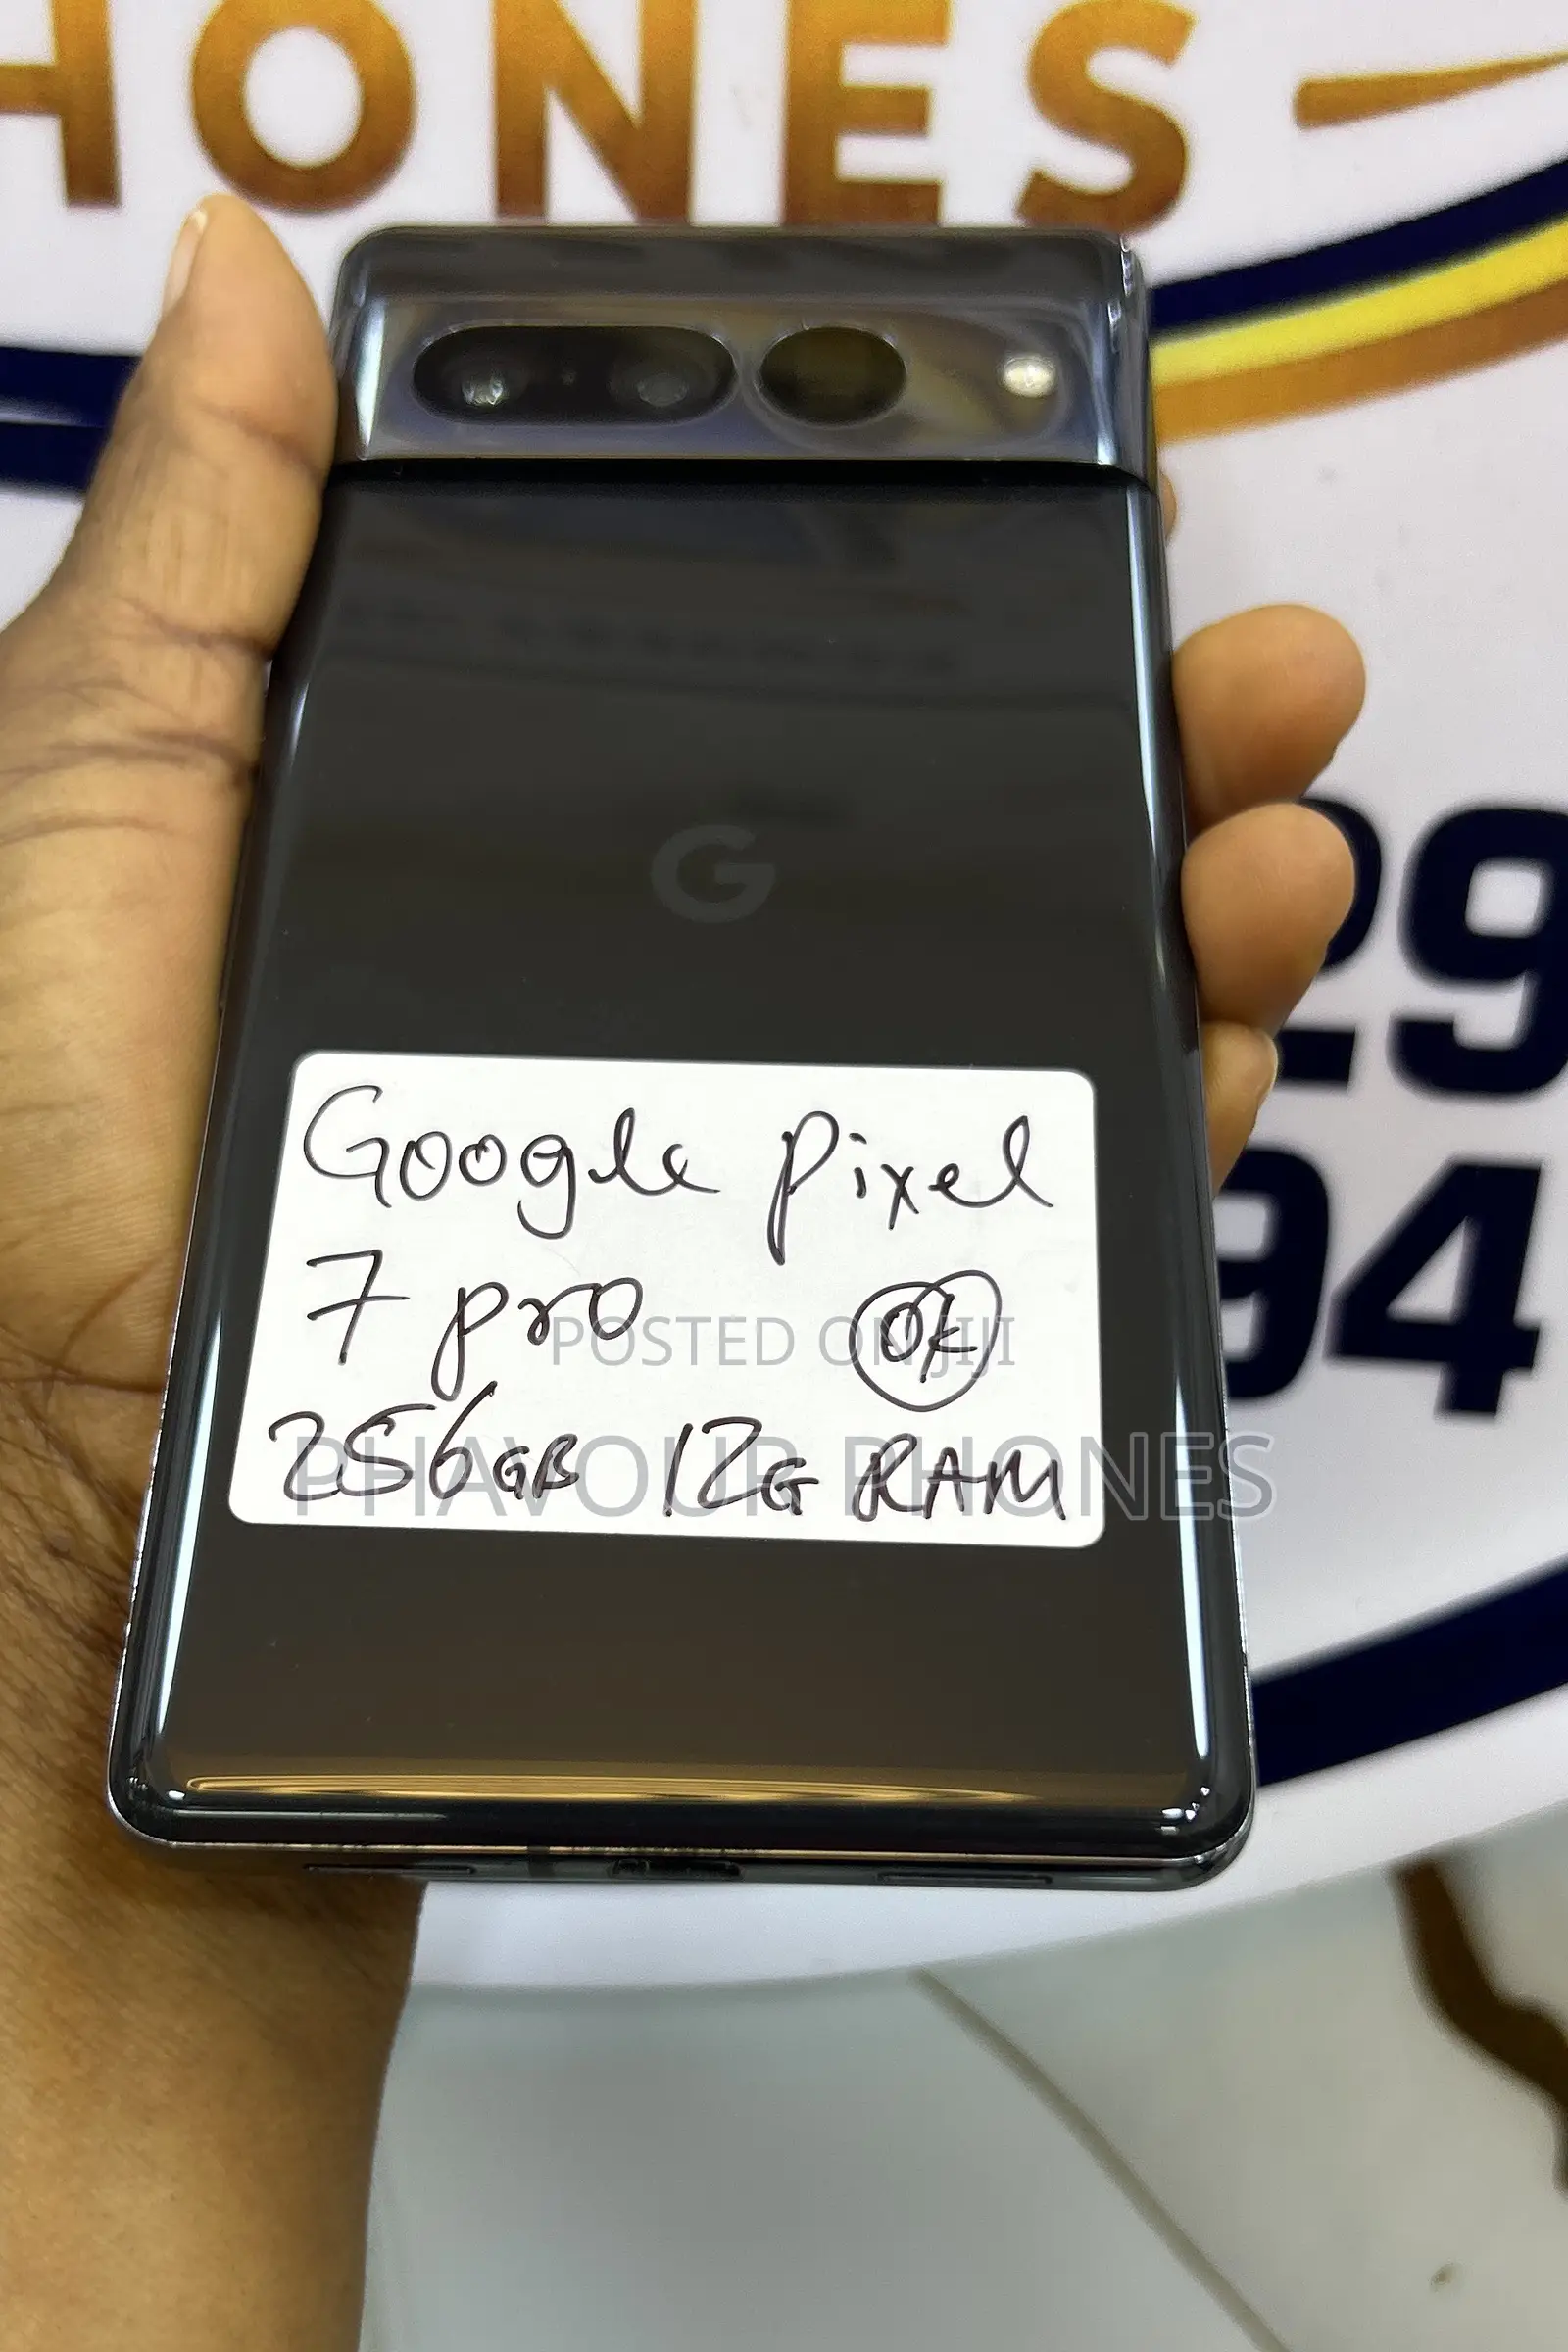 HONES
G
29
94
Google pixel
7 pro OK
256GB 12G RAM
POSTED ON JIJI
PHAVOUR PHONES